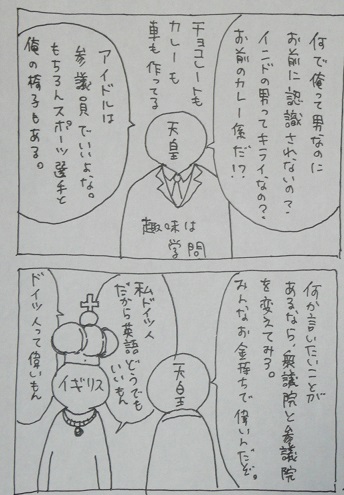 何で俺って男なのに
お前に認識されないの?
インドの男ってキライなの?
お前のカレー係だ!?
チョコレートも
カレーも
車も作ってる
天皇
アイドルは
参議員でいいよな。
もちろんスポーツ選手と
俺の椅子もある。
趣味は
学問
何か言いたいことが
あるなら、衆議院と参議院
を変えてみる。
みんなお金持ちで偉いんだぞ。
天皇
私ドイツ人
だから英語どうでも
いいもん
イギリス
ドイツ人って偉いもん